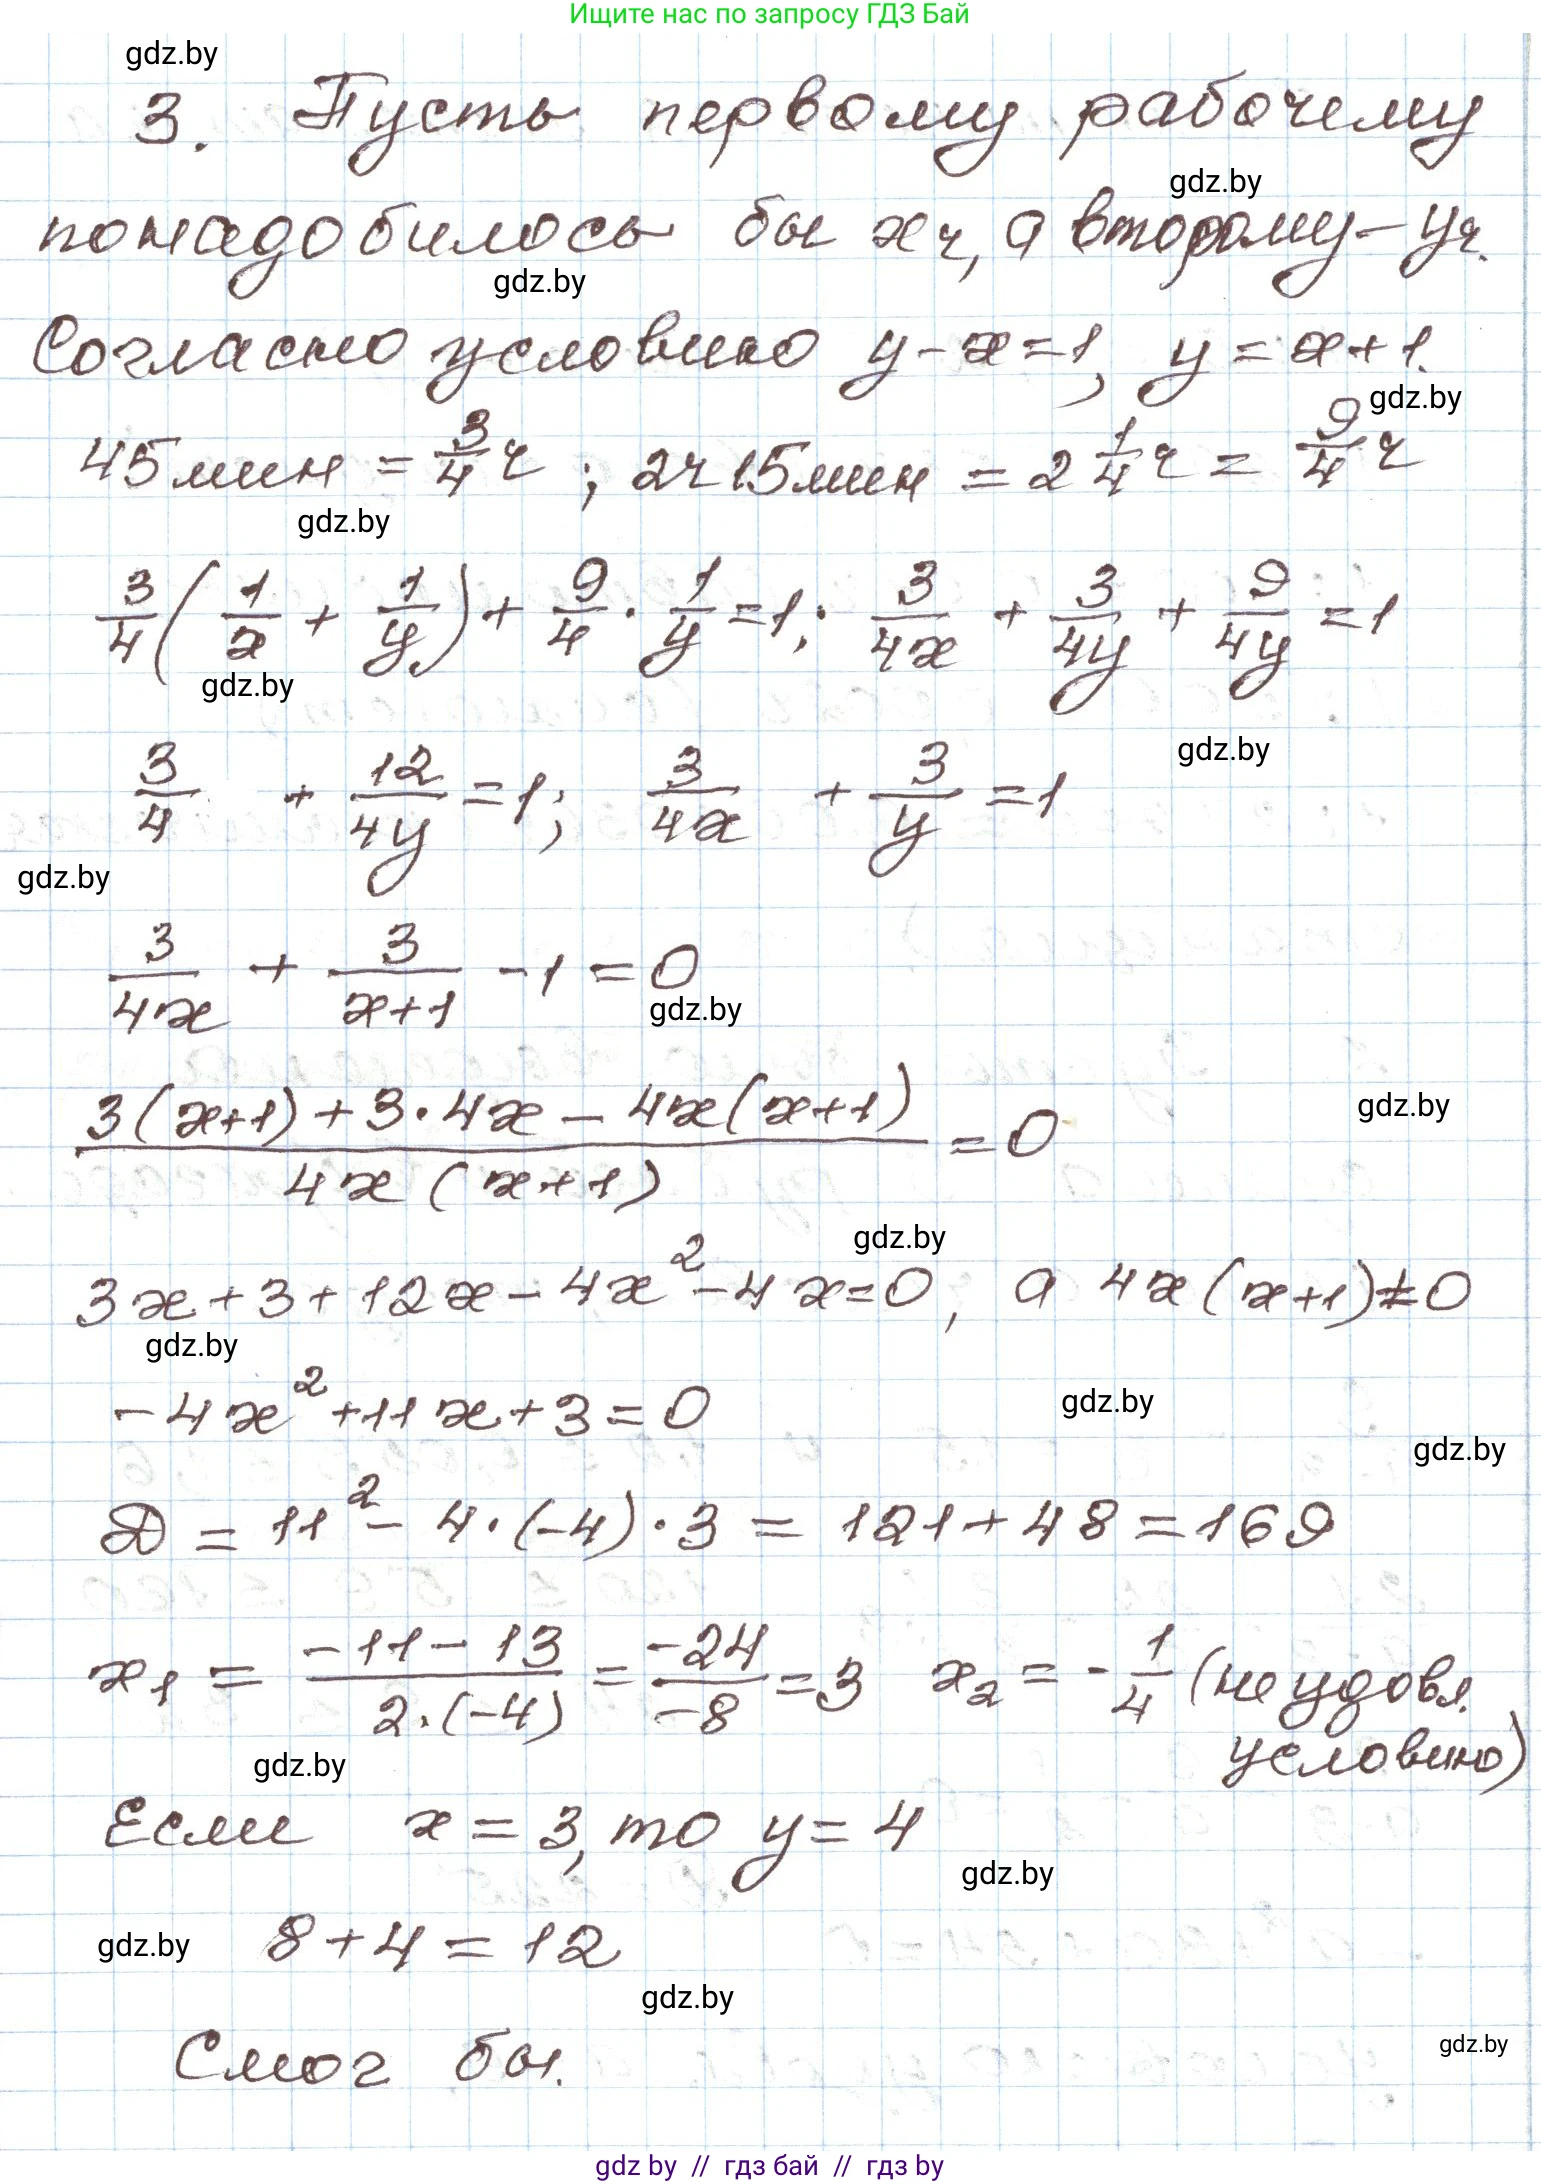 Ищите нас по запросу ГДЗ Бай
gdz.by
3. Пусть первому рабочему
gdz.by
понадобилось бы x ч, а второму – y ч.
gdz.by
Согласно условию y - x = 1, y = x + 1.
gdz.by
45 мин = 3/4 ч ; 2 ч 15 мин = 2 1/4 ч = 9/4 ч
gdz.by
3/4 (1/x + 1/y) + 9/4 · 1/y = 1; 3/4x + 3/4y + 9/4y = 1
gdz.by
gdz.by
3/4 + 12/4y = 1; 3/4x + 3/y = 1
gdz.by
3/4x + 3/(x+1) - 1 = 0
gdz.by
(3(x+1) + 3·4x - 4x(x+1))/(4x(x+1)) = 0
gdz.by
gdz.by
3x + 3 + 12x - 4x² - 4x = 0, а 4x(x+1) ≠ 0
gdz.by
-4x² + 11x + 3 = 0
gdz.by
gdz.by
Д = 11² - 4·(-4)·3 = 121 + 48 = 169
x₁ = (-11 - 13)/(2·(-4)) = -24/-8 = 3 x₂ = -1/4 (не удовл.
условию)
gdz.by
Если x = 3, то y = 4
gdz.by
gdz.by
8 + 4 = 12
gdz.by
Смог бы.
gdz.by
gdz by // гдз бай // гдз by